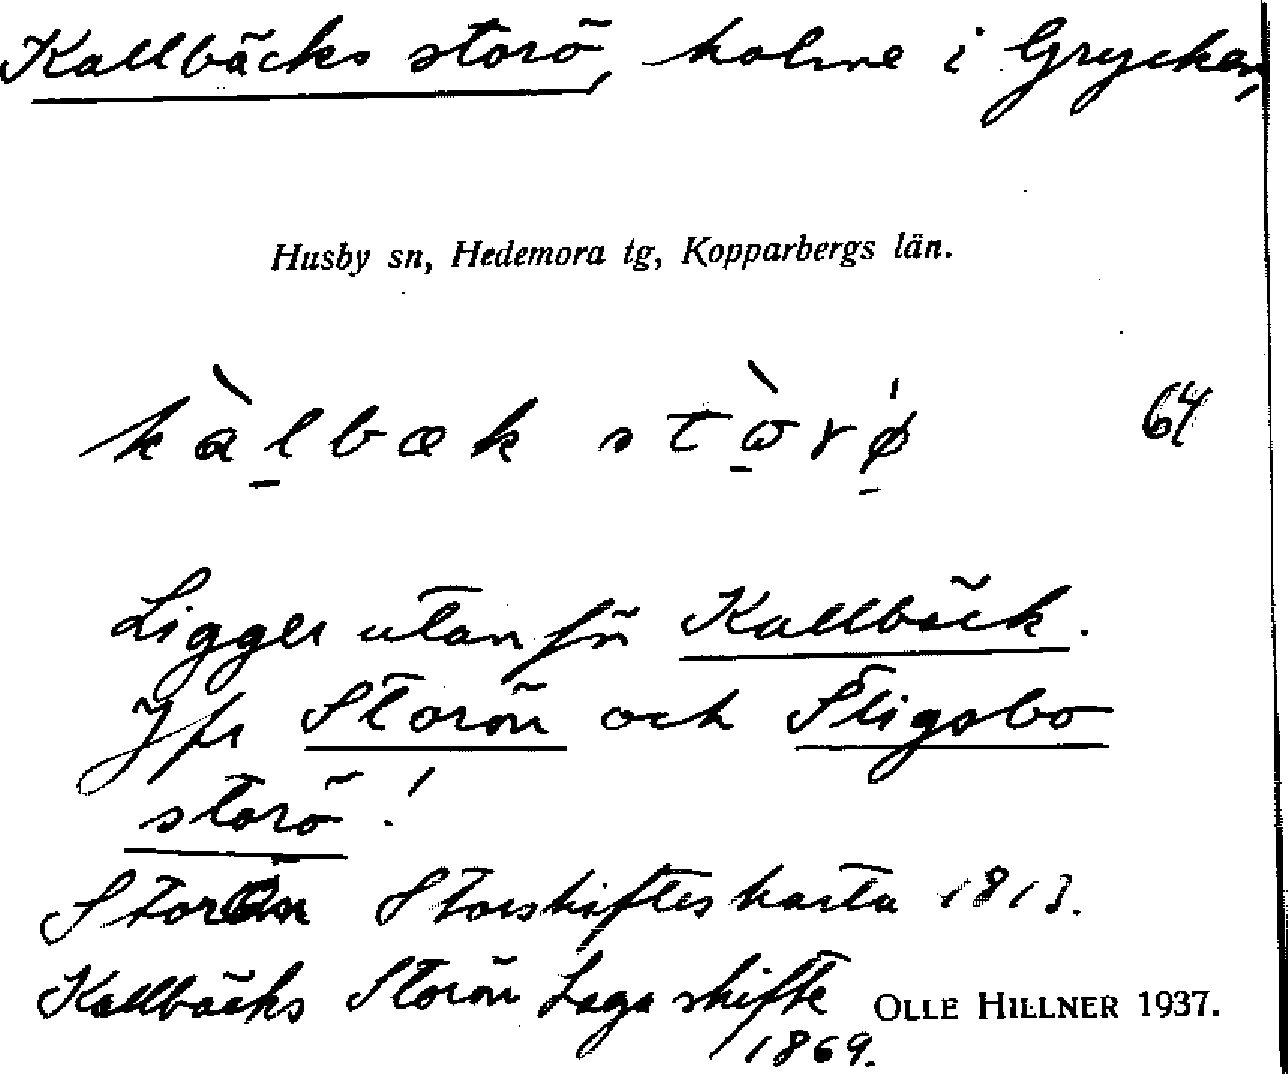 Kallbäcks storö, holme i Grycken,
Husby sn, Hedemora tg, Kopparbergs län.
kàlbæk stòrø 64
Ligger utanför Kallbäck.
Jfr Storön och Stigsbo
storö!
Storön Storskifteskarta 1813.
Kallbäcks Storön Laga skifte OLLE HILLNER 1937.
1869.